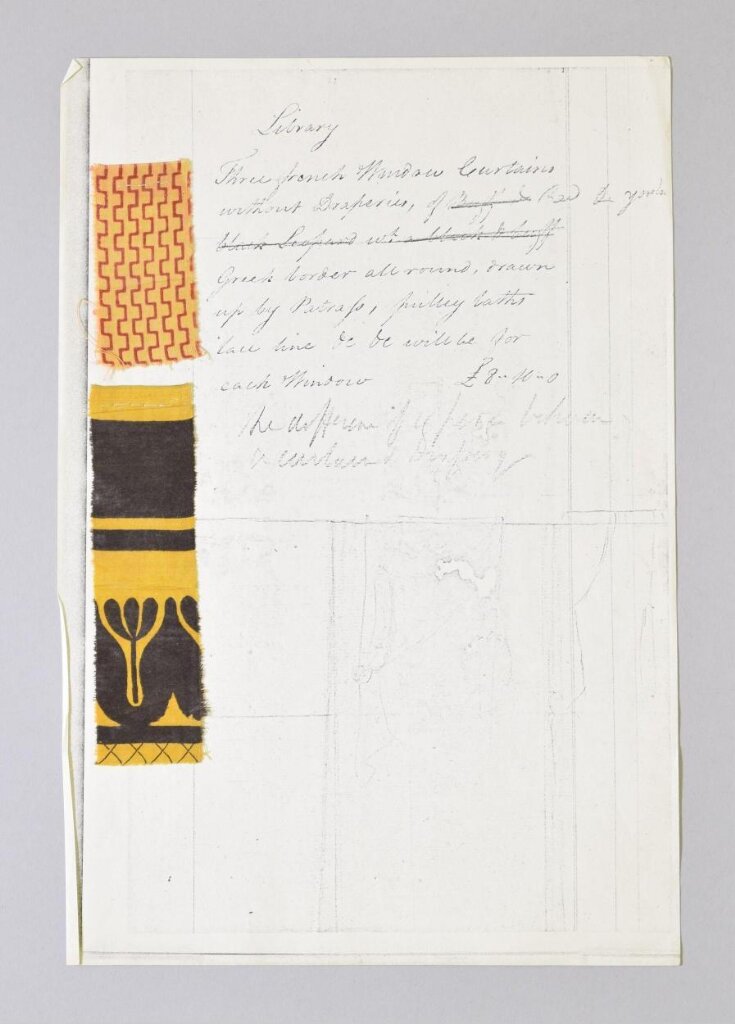 Library
Three french Window Curtains
without Draperies, of Buff & Red &
black Leopard wt a black & buff
Greek border all round, drawn
up by Patrass, pulley laths
lace line &c &c will be for
each Window £8-10-0
the difference if